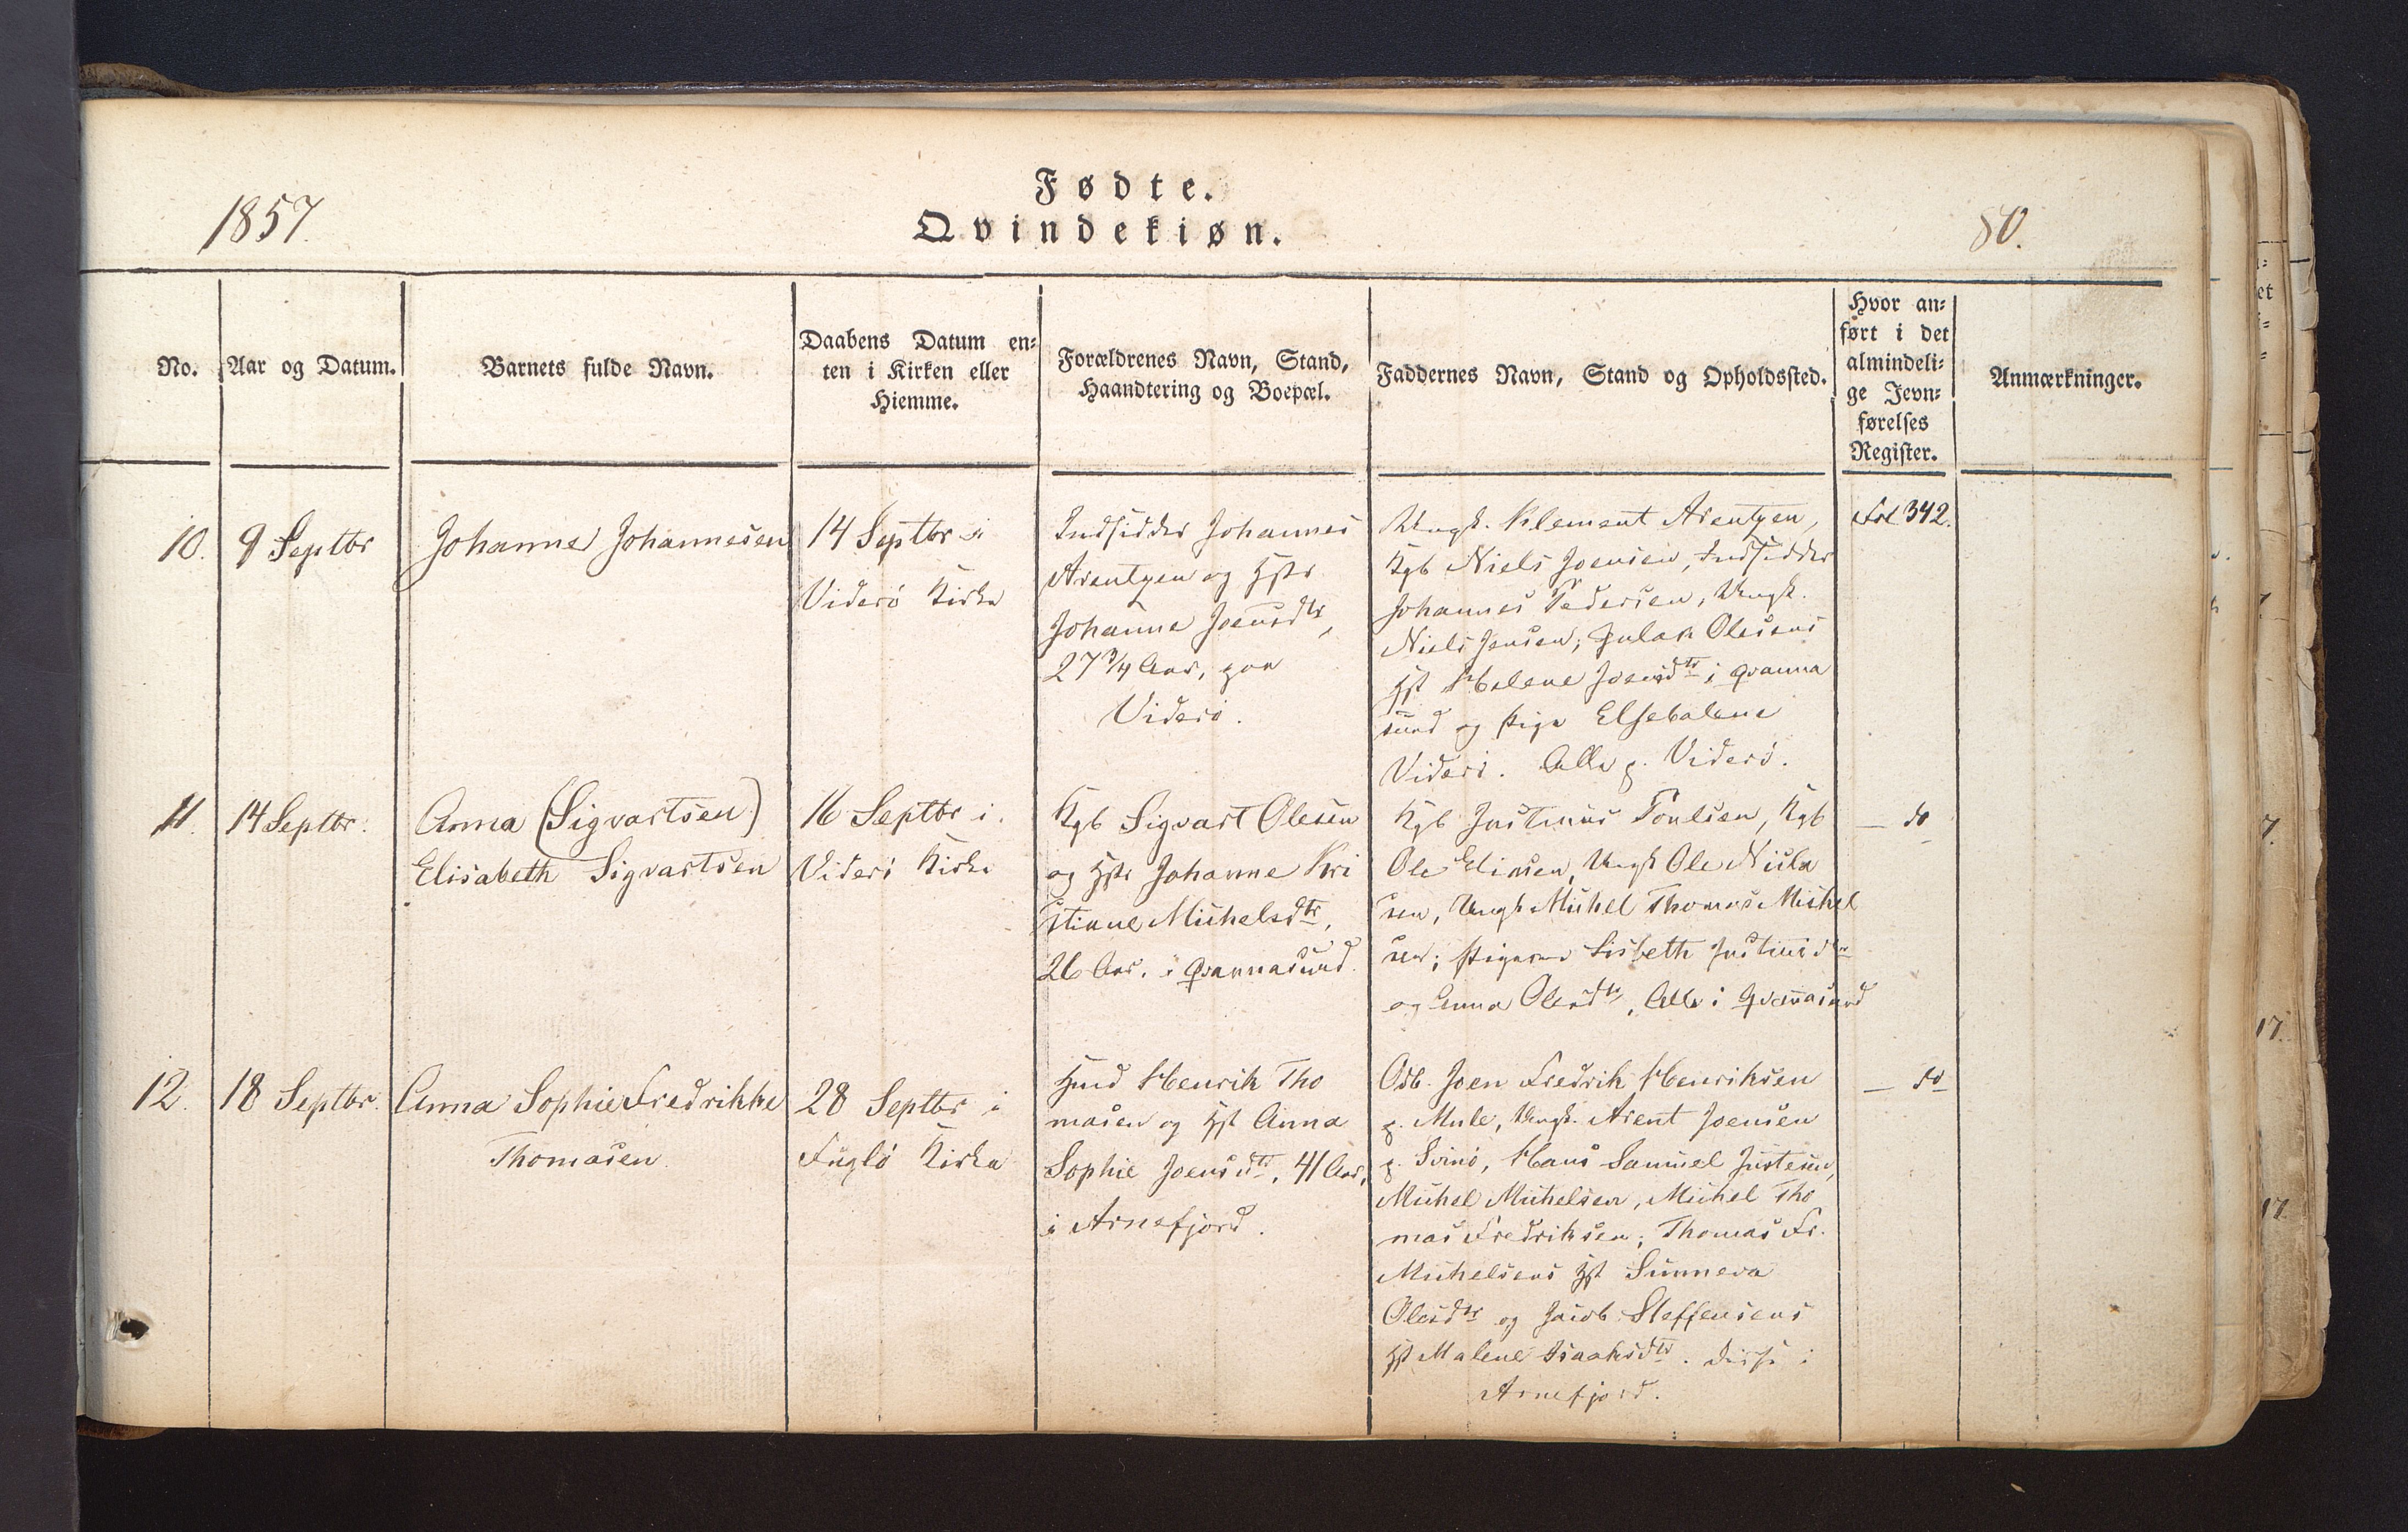 Fødte.
1857.
Qvindekiøn.
80.
No.
Aar og Datum.
Barnets fulde Navn.
Daabens Datum en-
ten i Kirken eller
Hiemme.
Forældrenes Navn, Stand,
Haandtering og Boepæl.
Faddernes Navn, Stand og Opholdssted.
Hvor an-
ført i det
almindeli-
ge Jevn-
førelses
Register.
Anmærkninger.
10.
9 Septbr
Johanne Johannesen
14 Septbr i
Viderö Kirke
Indsidder Johannes
Arentzen og Hstr
Johanne Joensdtr,
27 3/4 Aar, paa
Viderö.
Ungk. Klement Arentzen,
Kgb Niels Joensen, Indsidder
Johannes Pedersen, Ungk.
Niels Jensen; Olesens
Hst Helene Joensdtr i Qvanna
sund og Pige Elsebalene
Viderö. Alle p. Viderö.
Fol 342.
11.
14 Septbr.
Anna (Sigvartsen)
Elisabeth Sigvartsen
16 Septbr i
Viderö Kirke
Kgb Sigvart Olesen
og Hstr Johanne Kri
stiane Michelsdtr,
26 Aar, i Qvannasund.
Kgb Justinus Poulsen, Kgb
Ole Eliasen, Ungk Ole Nicla
sen, Ungk Michel Thomas Michel
sen; Pigerne Lisbeth Justinsdtr
og Anna Olesdtr, Alle i Qvannasund
— do
12.
18 Septbr.
Anna Sophie Fredrikke
Thomasen.
28 Septbr i
Fuglö Kirke
Hmd Henrik Tho
masen og Hst Anna
Sophie Joensdtr, 41 Aar,
i Arnefjord.
Odb. Joen Fredrik Henriksen
p. Mule, Ungk. Arent Joensen
p. Svinö, Hans Samuel Justesen,
Michel Michelsen, Michel Tho
mas Fredriksen; Thomas Fr.
Michelsens Hst Sunneva
Olesdtr og Jacob Steffensens
Hst Malene Isaaksdtr. disse i
Arnefjord.
— do